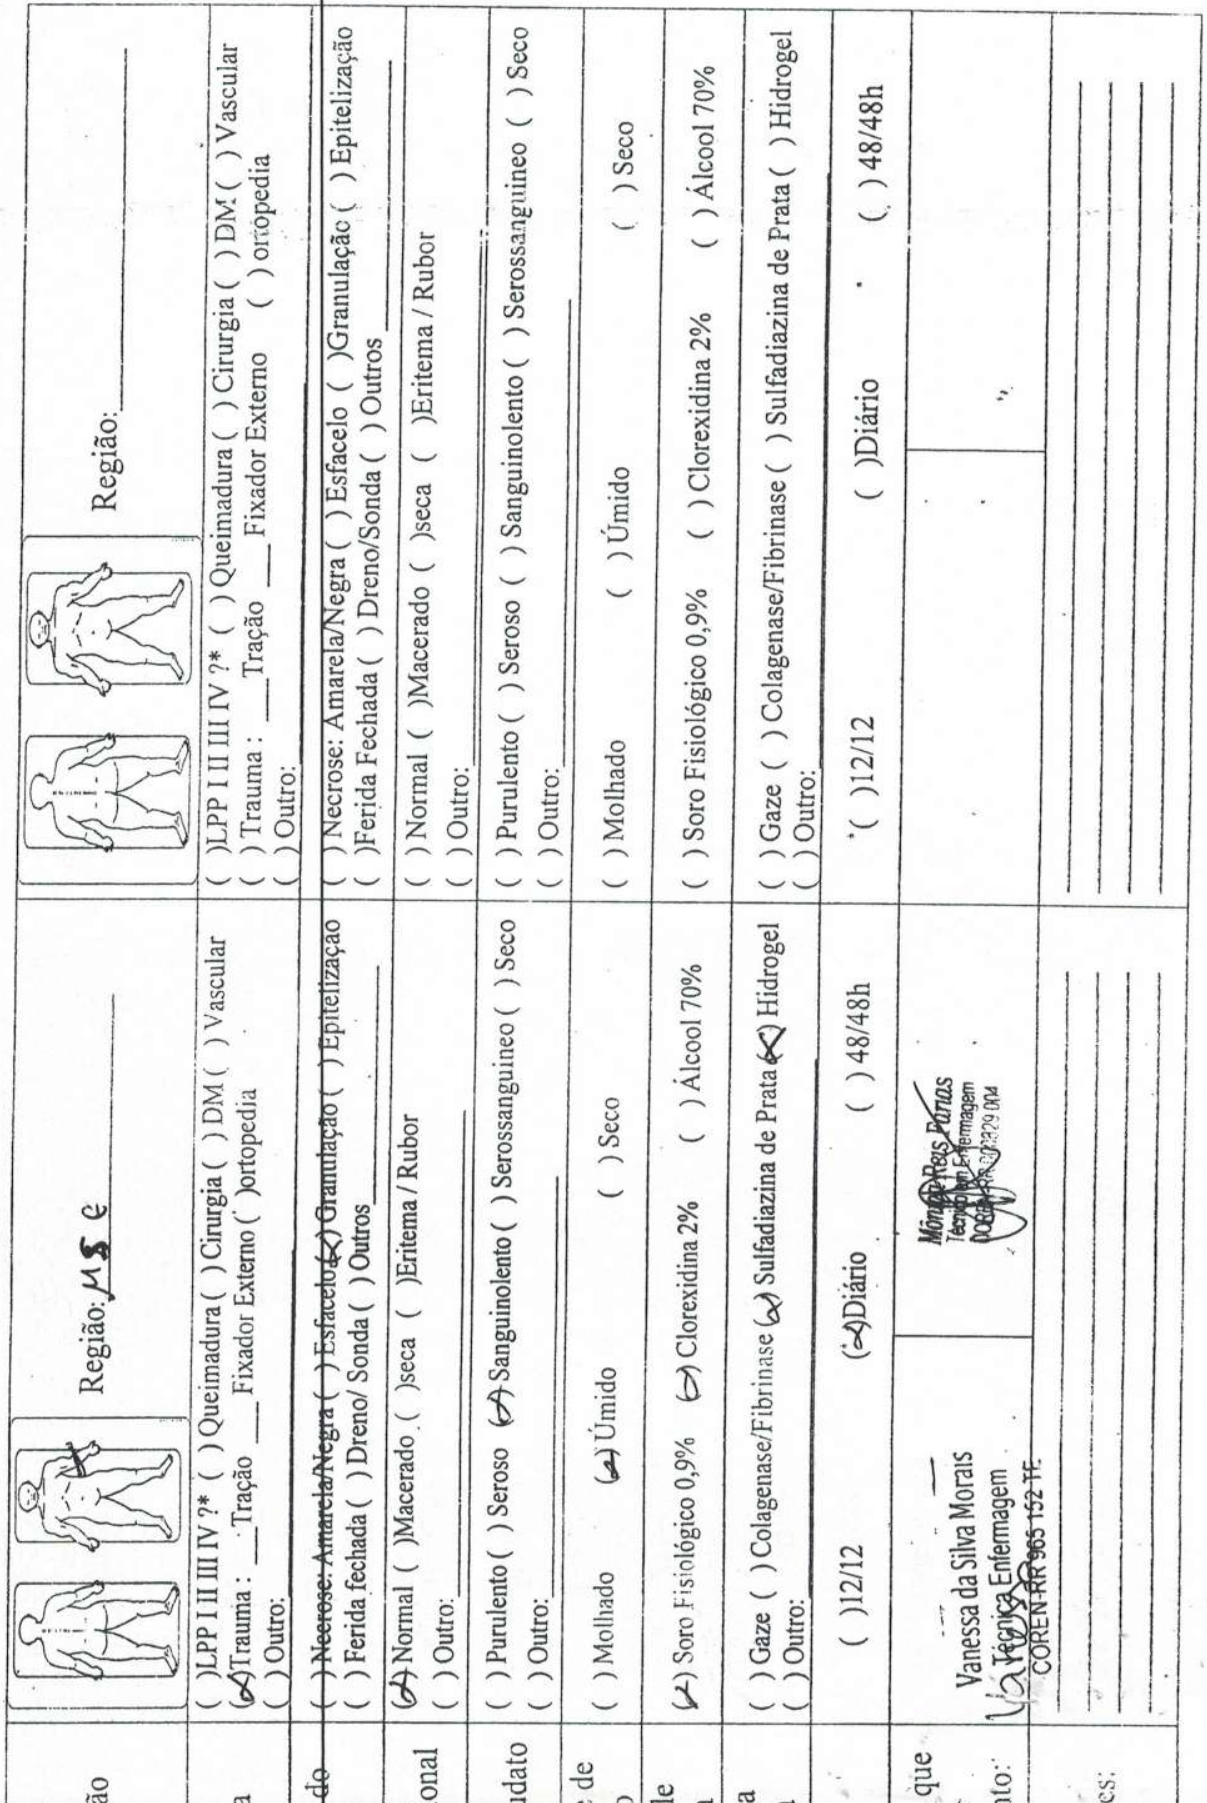 ão
Região: MSE
Região:
a
( )LPP I II III IV ?* ( ) Queimadura ( ) Cirurgia ( ) DM ( ) Vascular
(x)Trauma : ___Tração ____ Fixador Externo ( )ortopedia
( ) Outro:
( )LPP I II III IV ?* ( ) Queimadura ( ) Cirurgia ( ) DM ( ) Vascular
( ) Trauma : ___Tração ___ Fixador Externo ( ) ortopedia
( ) Outro:
do
( ) Necrose: Amarela/Negra ( ) Esfacelo (x) Granulação ( ) Epitelização
( ) Ferida fechada ( ) Dreno/ Sonda ( ) Outros
( ) Necrose: Amarela/Negra ( ) Esfacelo ( )Granulação ( ) Epitelização
( )Ferida Fechada ( ) Dreno/Sonda ( ) Outros
onal
(x) Normal ( )Macerado ( )seca ( )Eritema / Rubor
( ) Outro:
( ) Normal ( )Macerado ( )seca ( )Eritema / Rubor
( ) Outro:
udato
( ) Purulento ( ) Seroso (x) Sanguinolento ( ) Serossanguineo ( ) Seco
( ) Outro:
( ) Purulento ( ) Seroso ( ) Sanguinolento ( ) Serossanguineo ( ) Seco
( ) Outro:
e de
o
( ) Molhado (x) Úmido ( ) Seco
( ) Molhado ( ) Úmido ( ) Seco
de
a
(x) Soro Fisiológico 0,9% (x) Clorexidina 2% ( ) Álcool 70%
( ) Soro Fisiológico 0,9% ( ) Clorexidina 2% ( ) Álcool 70%
a
( ) Gaze ( ) Colagenase/Fibrinase (x) Sulfadiazina de Prata (x) Hidrogel
( ) Outro:
( ) Gaze ( ) Colagenase/Fibrinase ( ) Sulfadiazina de Prata ( ) Hidrogel
( ) Outro:
( )12/12 (x)Diário ( ) 48/48h
( )12/12 ( )Diário ( ) 48/48h
que
nto:
Vanessa da Silva Morais
Técnica Enfermagem
COREN-RR 965 152-TE
Vanessa
Mônica Reis Farias
Técnico em Enfermagem
COREN-RR
es: